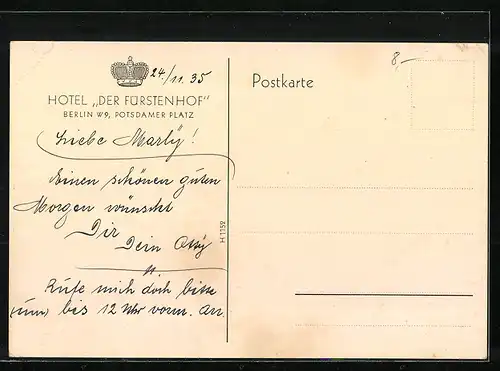 24./11. 35
HOTEL „DER FÜRSTENHOF"
BERLIN W9, POTSDAMER PLATZ
Liebe Marly!
Einen schönen guten
Morgen wünscht
Dir
Dein Otty
Rufe mich doch bitte
(um) bis 12 Uhr vorm. an
H 1152
Postkarte
8,-